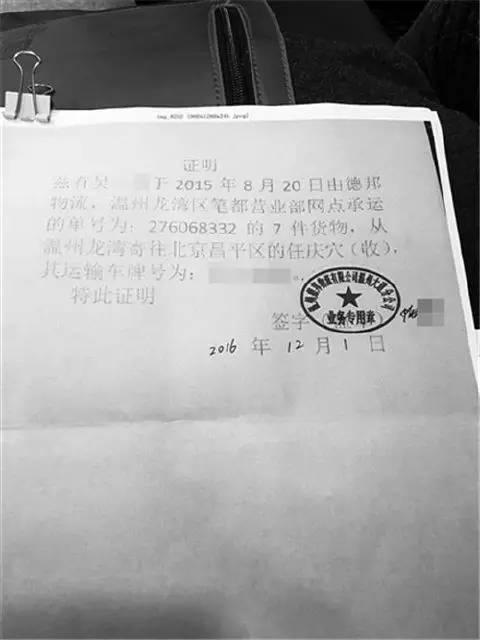 证明
兹有吴 于2015年8月20日由德邦
物流，温州龙湾区笔都营业部网点承运
的单号为：276068332的7件货物，从
温州龙湾寄往北京昌平区的任庆穴（收），
其运输车牌号为： 。
特此证明
签字（
业务专用章
2016年12月1日